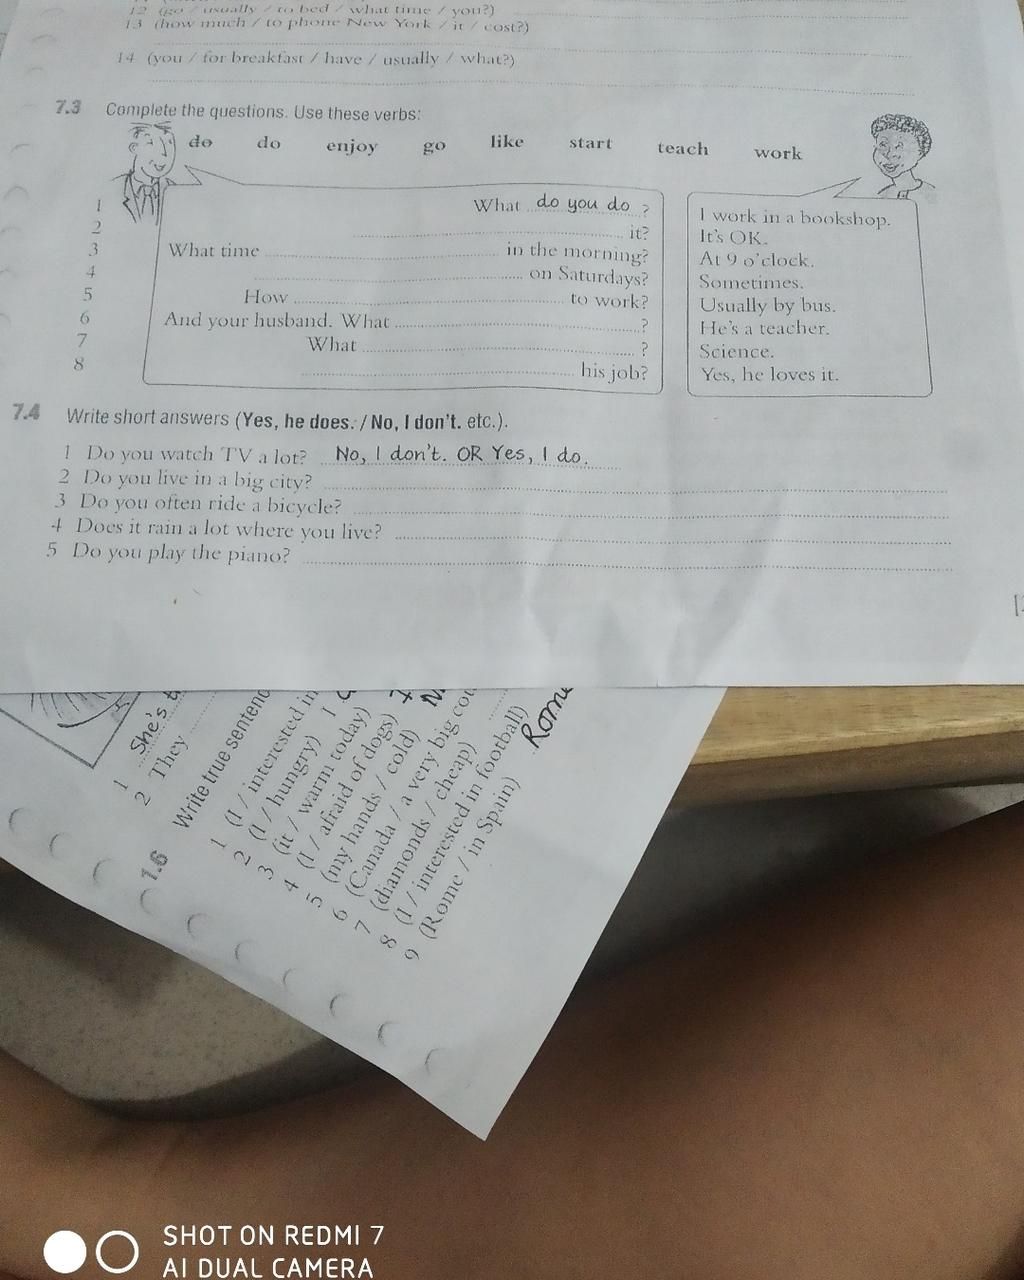 12 (go / usually / to bed / what time / you?)
13 (how much / to phone New York / it / cost?)
14 (you / for breakfast / have / usually / what?)
7.3 Complete the questions. Use these verbs:
do do enjoy go like start teach work
1 What do you do ? I work in a bookshop.
2 it? It's OK.
3 What time in the morning? At 9 o'clock.
4 on Saturdays? Sometimes.
5 How to work? Usually by bus.
6 And your husband. What ? He's a teacher.
7 What ? Science.
8 his job? Yes, he loves it.
7.4 Write short answers (Yes, he does. / No, I don't. etc.).
1 Do you watch TV a lot? No, I don't. OR Yes, I do.
2 Do you live in a big city?
3 Do you often ride a bicycle?
4 Does it rain a lot where you live?
5 Do you play the piano?
1 She's
2 They
1.6 Write true
1 (I / interested in
2 (I / hungry) I
3 (it / warm today)
4 (I / afraid of dogs)
5 (my hands / cold)
6 (Canada / a very big
7 (diamonds / cheap)
8 (I / interested in football)
9 (Rome / in Spain) Rome
SHOT ON REDMI 7
AI DUAL CAMERA